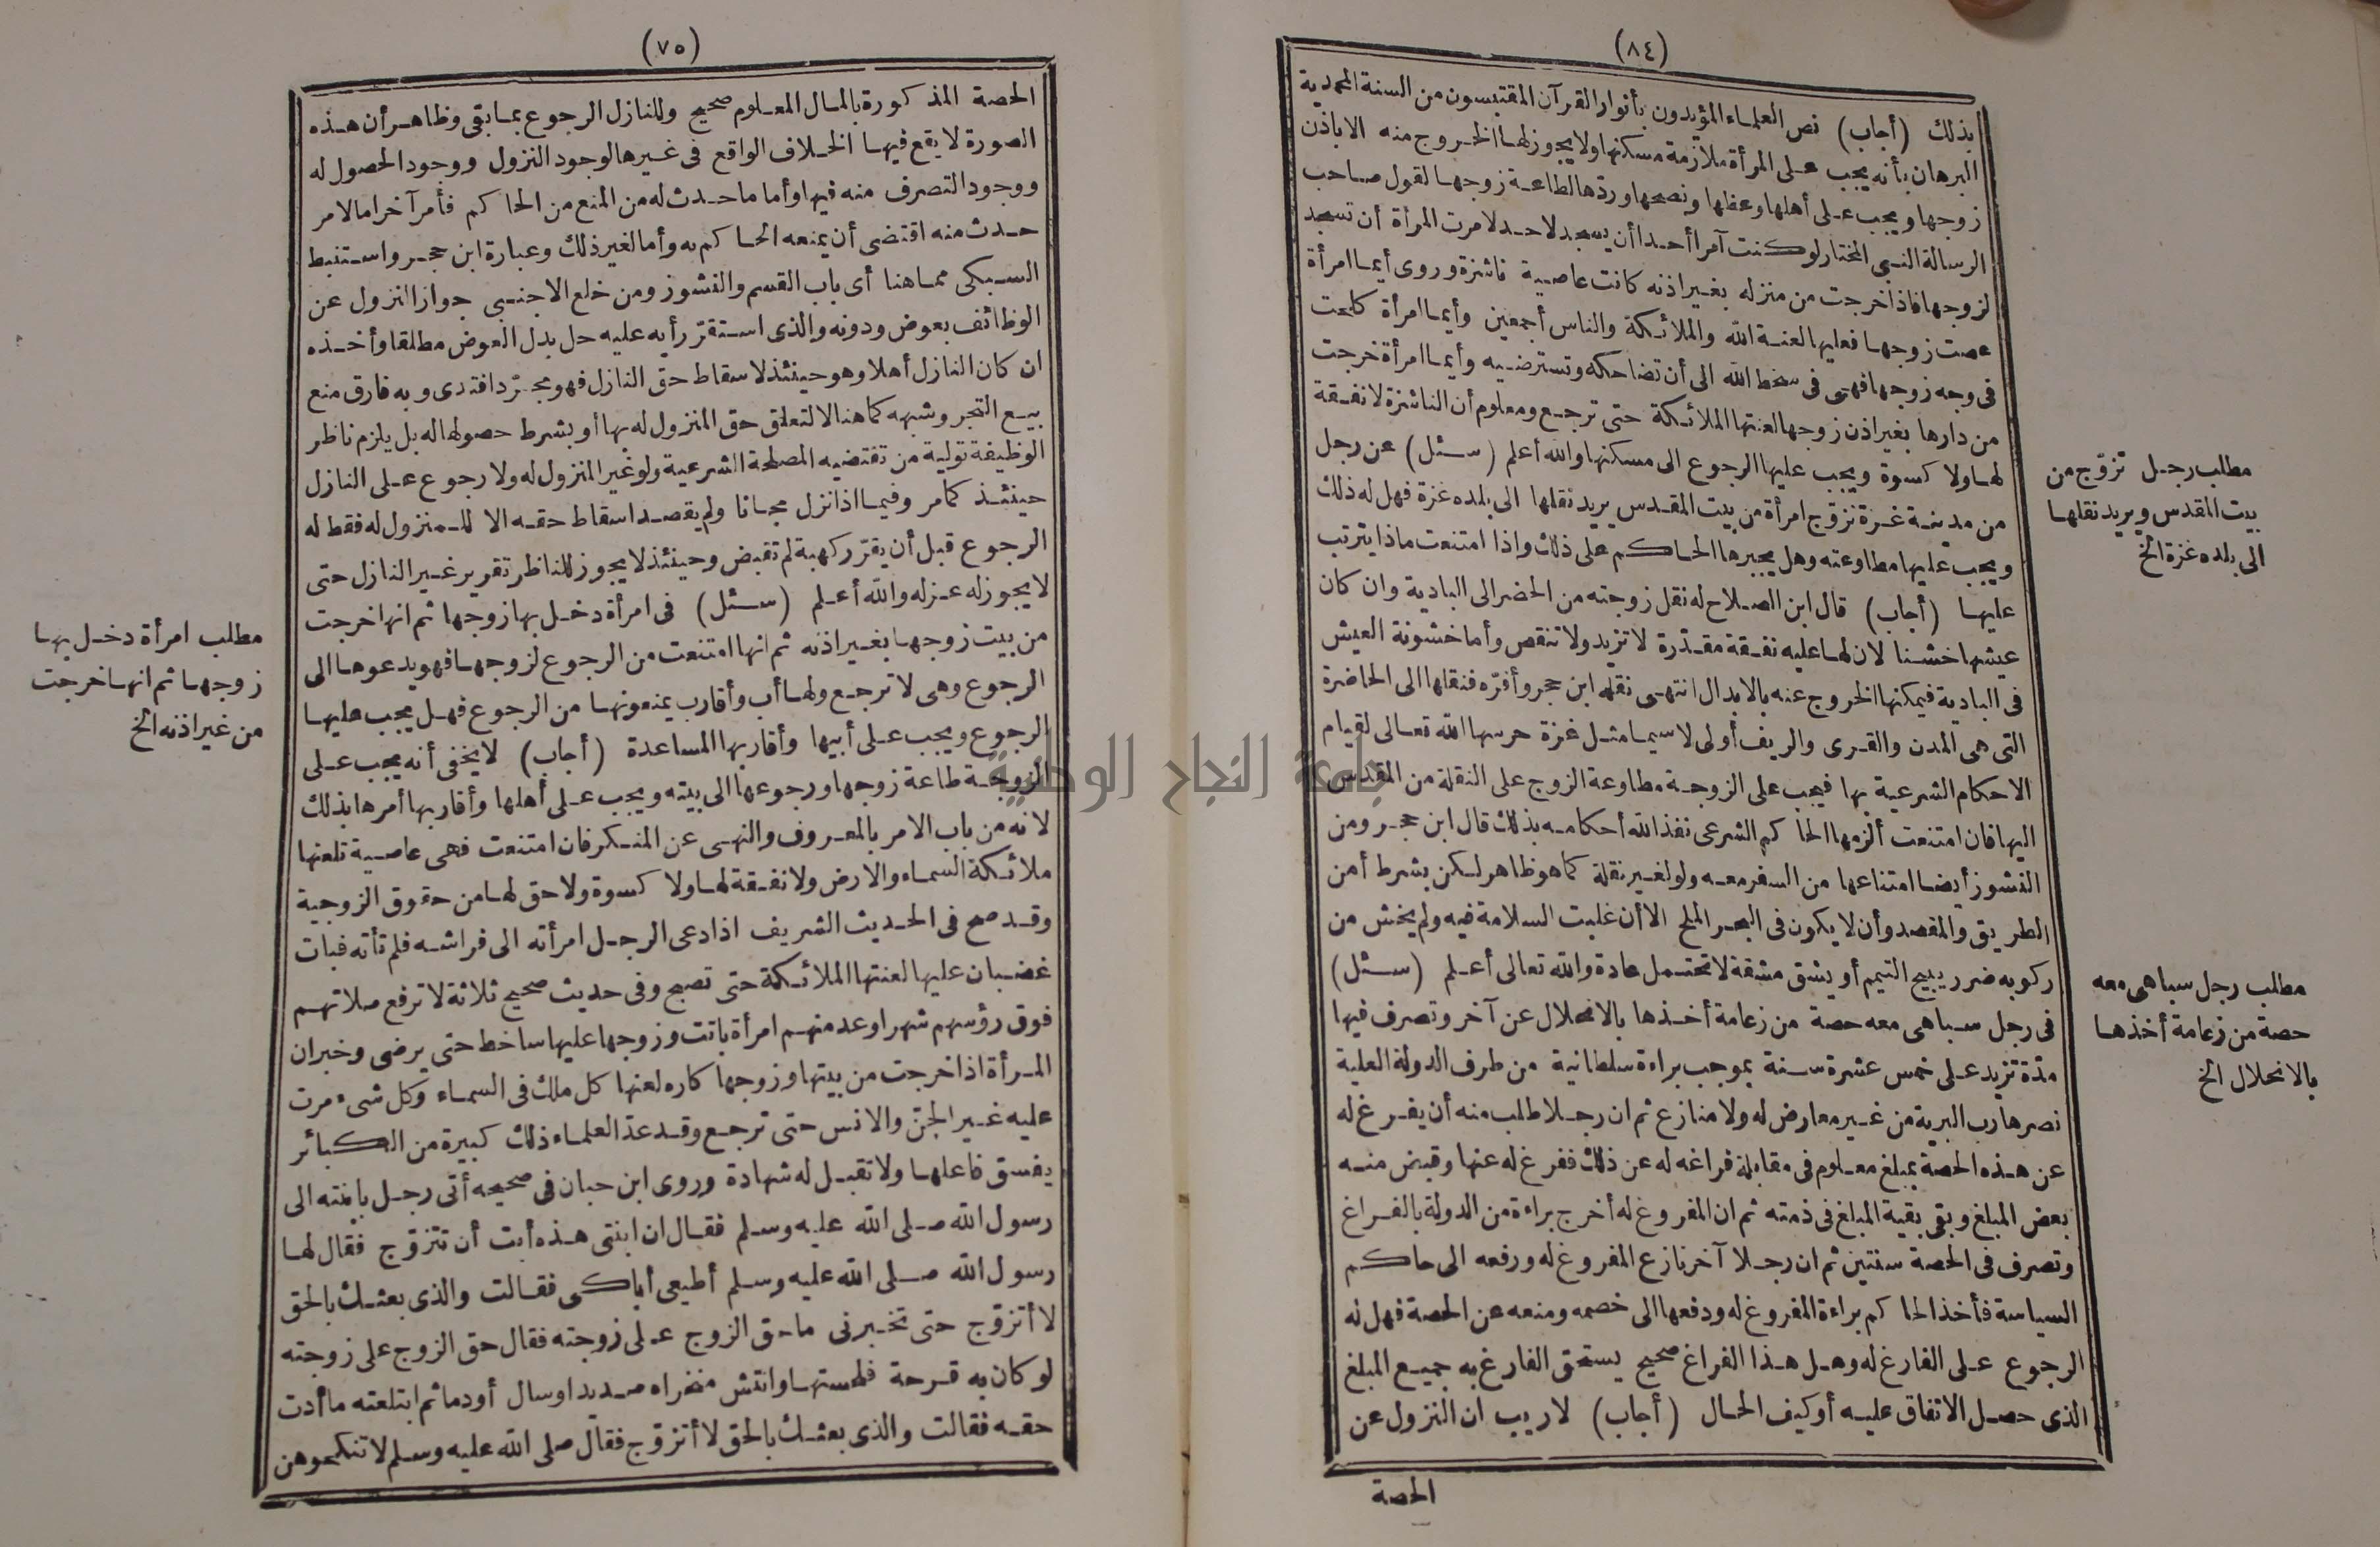 (٨٤)
بذلك (أجاب) نص العلماء المؤيدون بأنوار القرآن المقتبسون من السنة المحمدية
البرهان بأنه يجب على المرأة ملازمة مسكنها ولا يجوز لها الخروج منه الا باذن
زوجها ويجب على أهلها وعظها ونصحها وردّها لطاعة زوجها لقول صاحب
الرسالة النبي المختار لو كنت آمرا أحدا أن يسجد لاحد لامرت المرأة أن تسجد
لزوجها فاذا خرجت من منزله بغير اذنه كانت عاصية ناشزة وروى أيما امرأة
عصت زوجها فعليها لعنة الله والملائكة والناس أجمعين وأيما امرأة كلحت
فى وجه زوجها فهى فى سخط الله الى أن تضاحكه وتسترضيه وأيما امرأة خرجت
من دارها بغير اذن زوجها لعنتها الملائكة حتى ترجع ومعلوم أن الناشزة لا نفقة
لها ولا كسوة ويجب عليها الرجوع الى مسكنها والله أعلم (سئل) عن رجل
من مدينة غزة تزوّج امرأة من بيت المقدس يريد نقلها الى بلده غزة فهل له ذلك
ويجب عليها مطاوعته وهل يجبرها الحاكم على ذلك واذا امتنعت ماذا يترتب
عليها (أجاب) قال ابن الصلاح له نقل زوجته من الحضر الى البادية وان كان
عيشها خشنا لان لها عليه نفقة مقدّرة لا تزيد ولا تنقص وأما خشونة العيش
فى البادية فيمكنها الخروج عنه بالابدال انتهى نقله ابن حجر وأقرّه فنقلها الى الحاضرة
التى هى المدن والقرى والريف أولى لا سيما مثل غزة حرسها الله تعالى لقيام
الاحكام الشرعية بها فيجب على الزوجة مطاوعة الزوج على النقلة من المقدس
اليها فان امتنعت ألزمها الحاكم الشرعى نفذ الله أحكامه بذلك قال ابن حجر ومن
النشوز أيضا امتناعها من السفر معه ولو لغير نقلة كما هو ظاهر لكن بشرط أمن
الطريق والمقصد وأن لا يكون فى البحر الملح الا أن غلبت السلامة فيه ولم يخش من
ركوبه ضرر يبيح التيمم أو يشق مشقة لا تحتمل عادة والله تعالى أعلم (سئل)
فى رجل سباهى معه حصة من زعامة أخذها بالانحلال عن آخر وتصرف فيها
مدّة تزيد على خمس عشرة سنة بموجب براءة سلطانية من طرف الدولة العلية
نصرها رب البرية من غير معارض له ولا منازع ثم ان رجلا طلب منه أن يفرغ له
عن هذه الحصة بمبلغ معلوم فى مقابلة فراغه له عن ذلك ففرغ له عنها وقبض منه
بعض المبلغ وبقى بقية المبلغ فى ذمته ثم ان المفروغ له أخرج براءة من الدولة بالفراغ
وتصرف فى الحصة سنتين ثم ان رجلا آخر نازع المفروغ له ورفعه الى حاكم
السياسة فأخذ الحاكم براءة المفروغ له ودفعها الى خصمه ومنعه عن الحصة فهل له
الرجوع على الفارغ له وهل هذا الفراغ صحيح يستحق الفارغ به جميع المبلغ
الذى حصل الاتفاق عليه أو كيف الحال (أجاب) لا ريب ان النزول عن
الحصة
مطلب رجل تزوّج من
بيت المقدس ويريد نقلها
الى بلده غزة الخ
مطلب رجل سباهى معه
حصة من زعامة أخذها
بالانحلال الخ
(٧٥)
الحصة المذكورة بالمال المعلوم صحيح وللنازل الرجوع بما بقى وظاهر أن هذه
الصورة لا يقع فيها الخلاف الواقع فى غيرها لوجود النزول ووجود الحصول له
ووجود التصرف منه فيها وأما ما حدث له من المنع من الحاكم فأمر آخر اما لامر
حدث منه اقتضى أن يمنعه الحاكم به وأما لغير ذلك وعبارة ابن حجر واستنبط
السبكى مما هنا أى باب القسم والنشوز ومن خلع الاجنبى جواز النزول عن
الوظائف بعوض ودونه والذى استقرّ رأيه عليه حل بدل العوض مطلقا وأخذه
ان كان النازل أهلا وهو حينئذ لاسقاط حق النازل فهو مجرّد افتدى وبه فارق منع
بيع التحجر وشبهه كما هنا لا لتعلق حق المنزول له بها أو بشرط حصولها له بل يلزم ناظر
الوظيفة تولية من تقتضيه المصلحة الشرعية ولو غير المنزول له ولا رجوع على النازل
حينئذ كما مر وفيما اذا نزل مجانا ولم يقصد اسقاط حقه الا للمنزول له فقط له
الرجوع قبل أن يقرّر كهبة لم تقبض وحينئذ لا يجوز للناظر تقرير غير النازل حتى
لا يجوز له عزله والله أعلم (سئل) فى امرأة دخل بها زوجها ثم انها خرجت
من بيت زوجها بغير اذنه ثم انها امتنعت من الرجوع لزوجها فهو يدعوها الى
الرجوع وهى لا ترجع ولها أب وأقارب يمنعونها من الرجوع فهل يجب عليها
الرجوع ويجب على أبيها وأقاربها المساعدة (أجاب) لا يخفى أنه يجب على
الزوجة طاعة زوجها ورجوعها الى بيته ويجب على أهلها وأقاربها أمرها بذلك
لانه من باب الامر بالمعروف والنهى عن المنكر فان امتنعت فهى عاصية تلعنها
ملائكة السماء والارض ولا نفقة لها ولا كسوة ولا حق لها من حقوق الزوجية
وقد صح فى الحديث الشريف اذا دعى الرجل امرأته الى فراشه فلم تأته فبات
غضبان عليها لعنتها الملائكة حتى تصبح وفى حديث صحيح ثلاثة لا ترفع صلاتهم
فوق رؤسهم شبرا وعد منهم امرأة باتت وزوجها عليها ساخط حتى يرضى وخبر ان
المرأة اذا خرجت من بيتها وزوجها كاره لعنها كل ملك فى السماء وكل شىء مرت
عليه غير الجنّ والانس حتى ترجع وقد عدّ العلماء ذلك كبيرة من الكبائر
يفسق فاعلها ولا تقبل له شهادة وروى ابن حبان فى صحيحه أتى رجل بابنته الى
رسول الله صلى الله عليه وسلم فقال ان ابنتى هذه أبت أن تتزوّج فقال لها
رسول الله صلى الله عليه وسلم أطيعى أباكى فقالت والذى بعثك بالحق
لا أتزوّج حتى تخبرنى ما حق الزوج على زوجته فقال حق الزوج على زوجته
لو كان به قرحة فلحستها وانتثر منخراه صديدا وسال أو دما ثم ابتلعته ما أدت
حقه فقالت والذى بعثك بالحق لا أتزوّج فقال صلى الله عليه وسلم لا تنكحوهن
مطلب امرأة دخل بها
زوجها ثم انها خرجت
من غير اذنه الخ
جامعة النجاح الوطنية